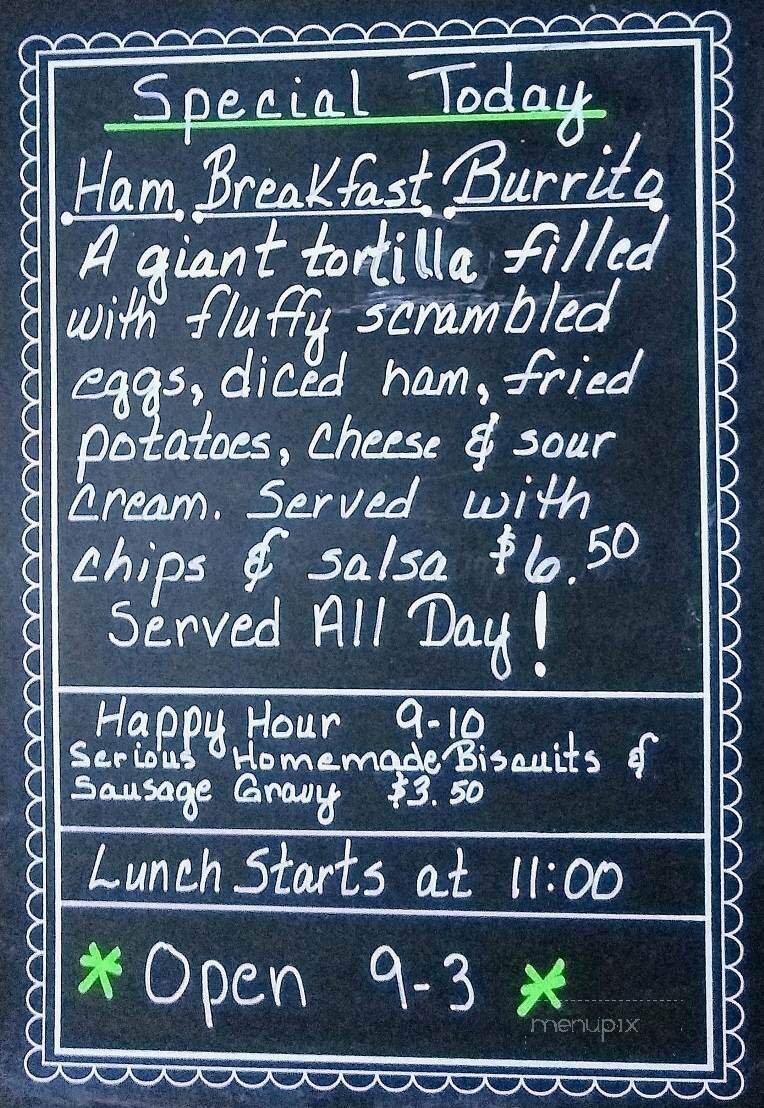 Special Today
Ham Breakfast Burrito
A giant tortilla filled
with fluffy scrambled
eggs, diced ham, fried
potatoes, cheese & sour
cream. Served with
chips & salsa $6.50
Served All Day!
Happy Hour 9-10
Serious Homemade Biscuits &
Sausage Gravy $3.50
Lunch Starts at 11:00
* Open 9-3 *
menupix